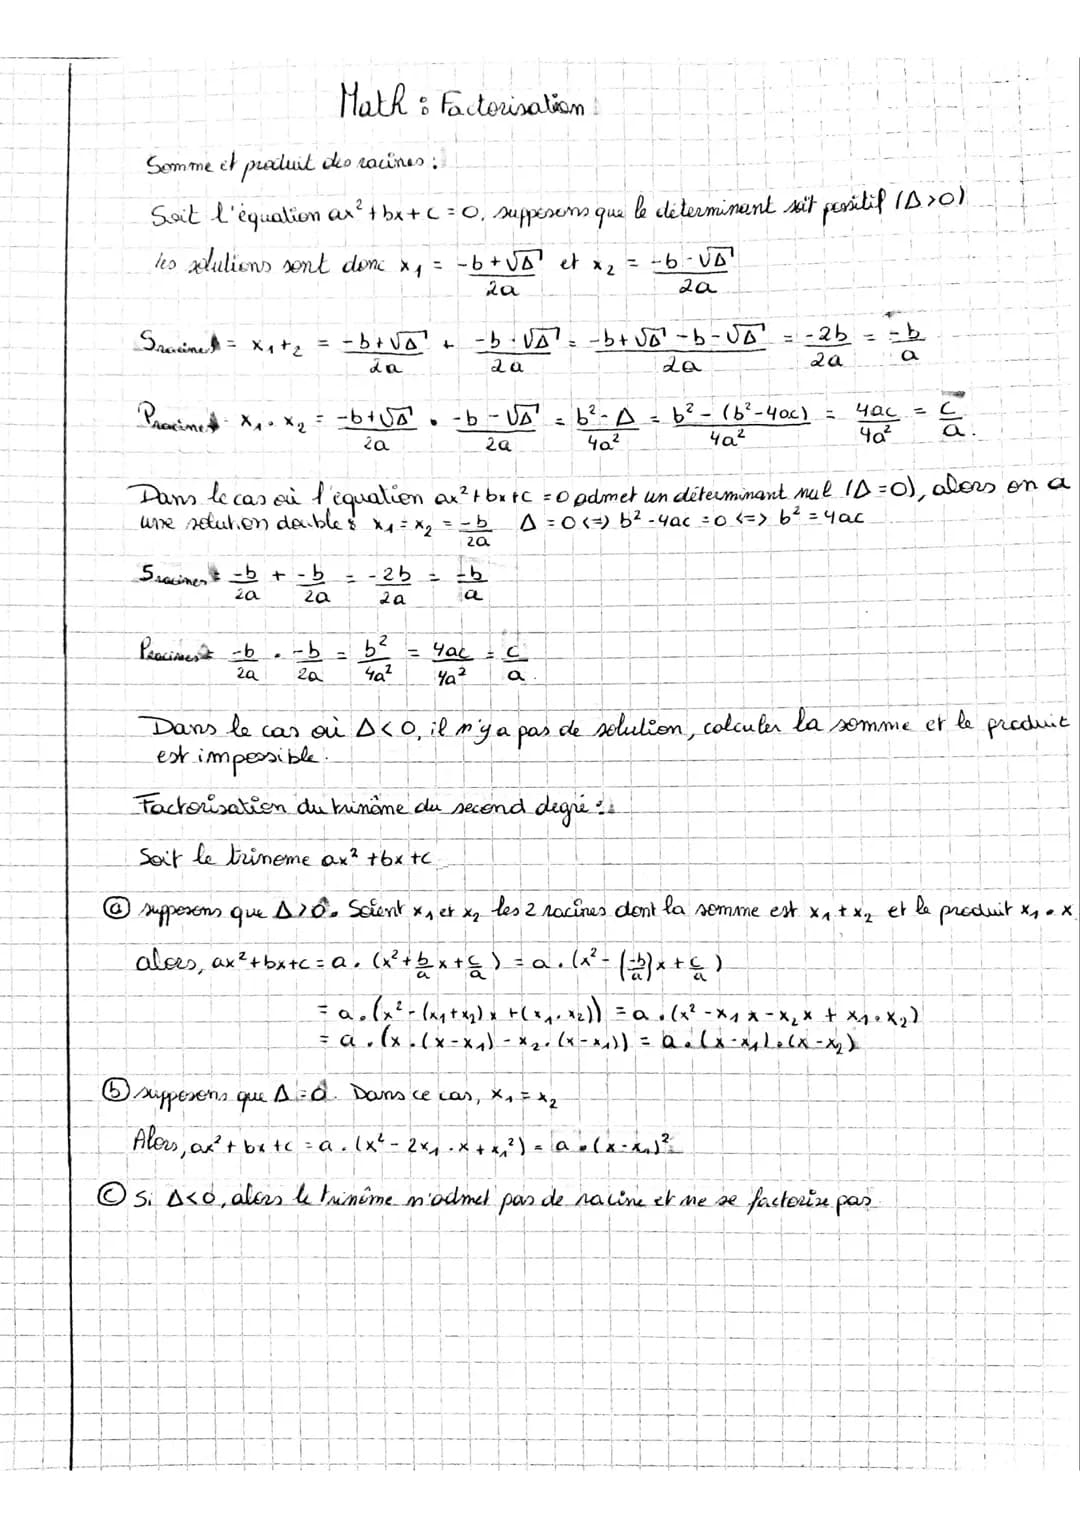 Math : Factorisation
Somme et produit des racines :
Soit l'équation ax² + bx + c = 0, supposons que le déterminant soit positif (Δ>0)
les solutions sont donc x₁ = (-b+√Δ)/2a et x₂ = (-b-√Δ)/2a
Sracines = x₁+₂ = (-b+√Δ)/2a + (-b-√Δ)/2a = (-b+√Δ-b-√Δ)/2a = -2b/2a = -b/a
Pracines = x₁ . x₂ = (-b+√Δ)/2a . (-b-√Δ)/2a = (b²-Δ)/4a² = (b²-(b²-4ac))/4a² = 4ac/4a² = c/a.
Dans le cas où l'équation ax²+bx+c = 0 admet un déterminant nul (Δ=0), alors on a
une solution double : x₁ = x₂ = -b/2a Δ = 0 <=> b²-4ac = 0 <=> b² = 4ac
Sracines = -b/2a + -b/2a = -2b/2a = -b/a
Pracines = -b/2a . -b/2a = b²/4a² = 4ac/4a² = c/a.
Dans le cas où Δ<0, il n'y a pas de solution, calculer la somme et le produit
est impossible.
Factorisation du trinôme du second degré :
Soit le trinome ax² + bx + c
ⓐ supposons que Δ>0. Soient x₁ et x₂ les 2 racines dont la somme est x₁ + x₂ et le produit x₁ . x
alors, ax²+bx+c = a . (x² + b/a x + c/a) = a . (x² - (-b/a)x + c/a)
= a . (x² - (x₁+x₂)x + (x₁ . x₂)) = a . (x² - x₁x - x₂x + x₁ . x₂)
= a . (x . (x-x₁) - x₂ . (x-x₁)) = a . (x-x₁) . (x-x₂)
ⓑ supposons que Δ=0. Dans ce cas, x₁ = x₂
Alors, ax² + bx + c = a . (x² - 2x₁ . x + x₁²) = a . (x-x₁)²
ⓒ Si Δ<0, alors le trinôme n'admet pas de racine et ne se factorise pas